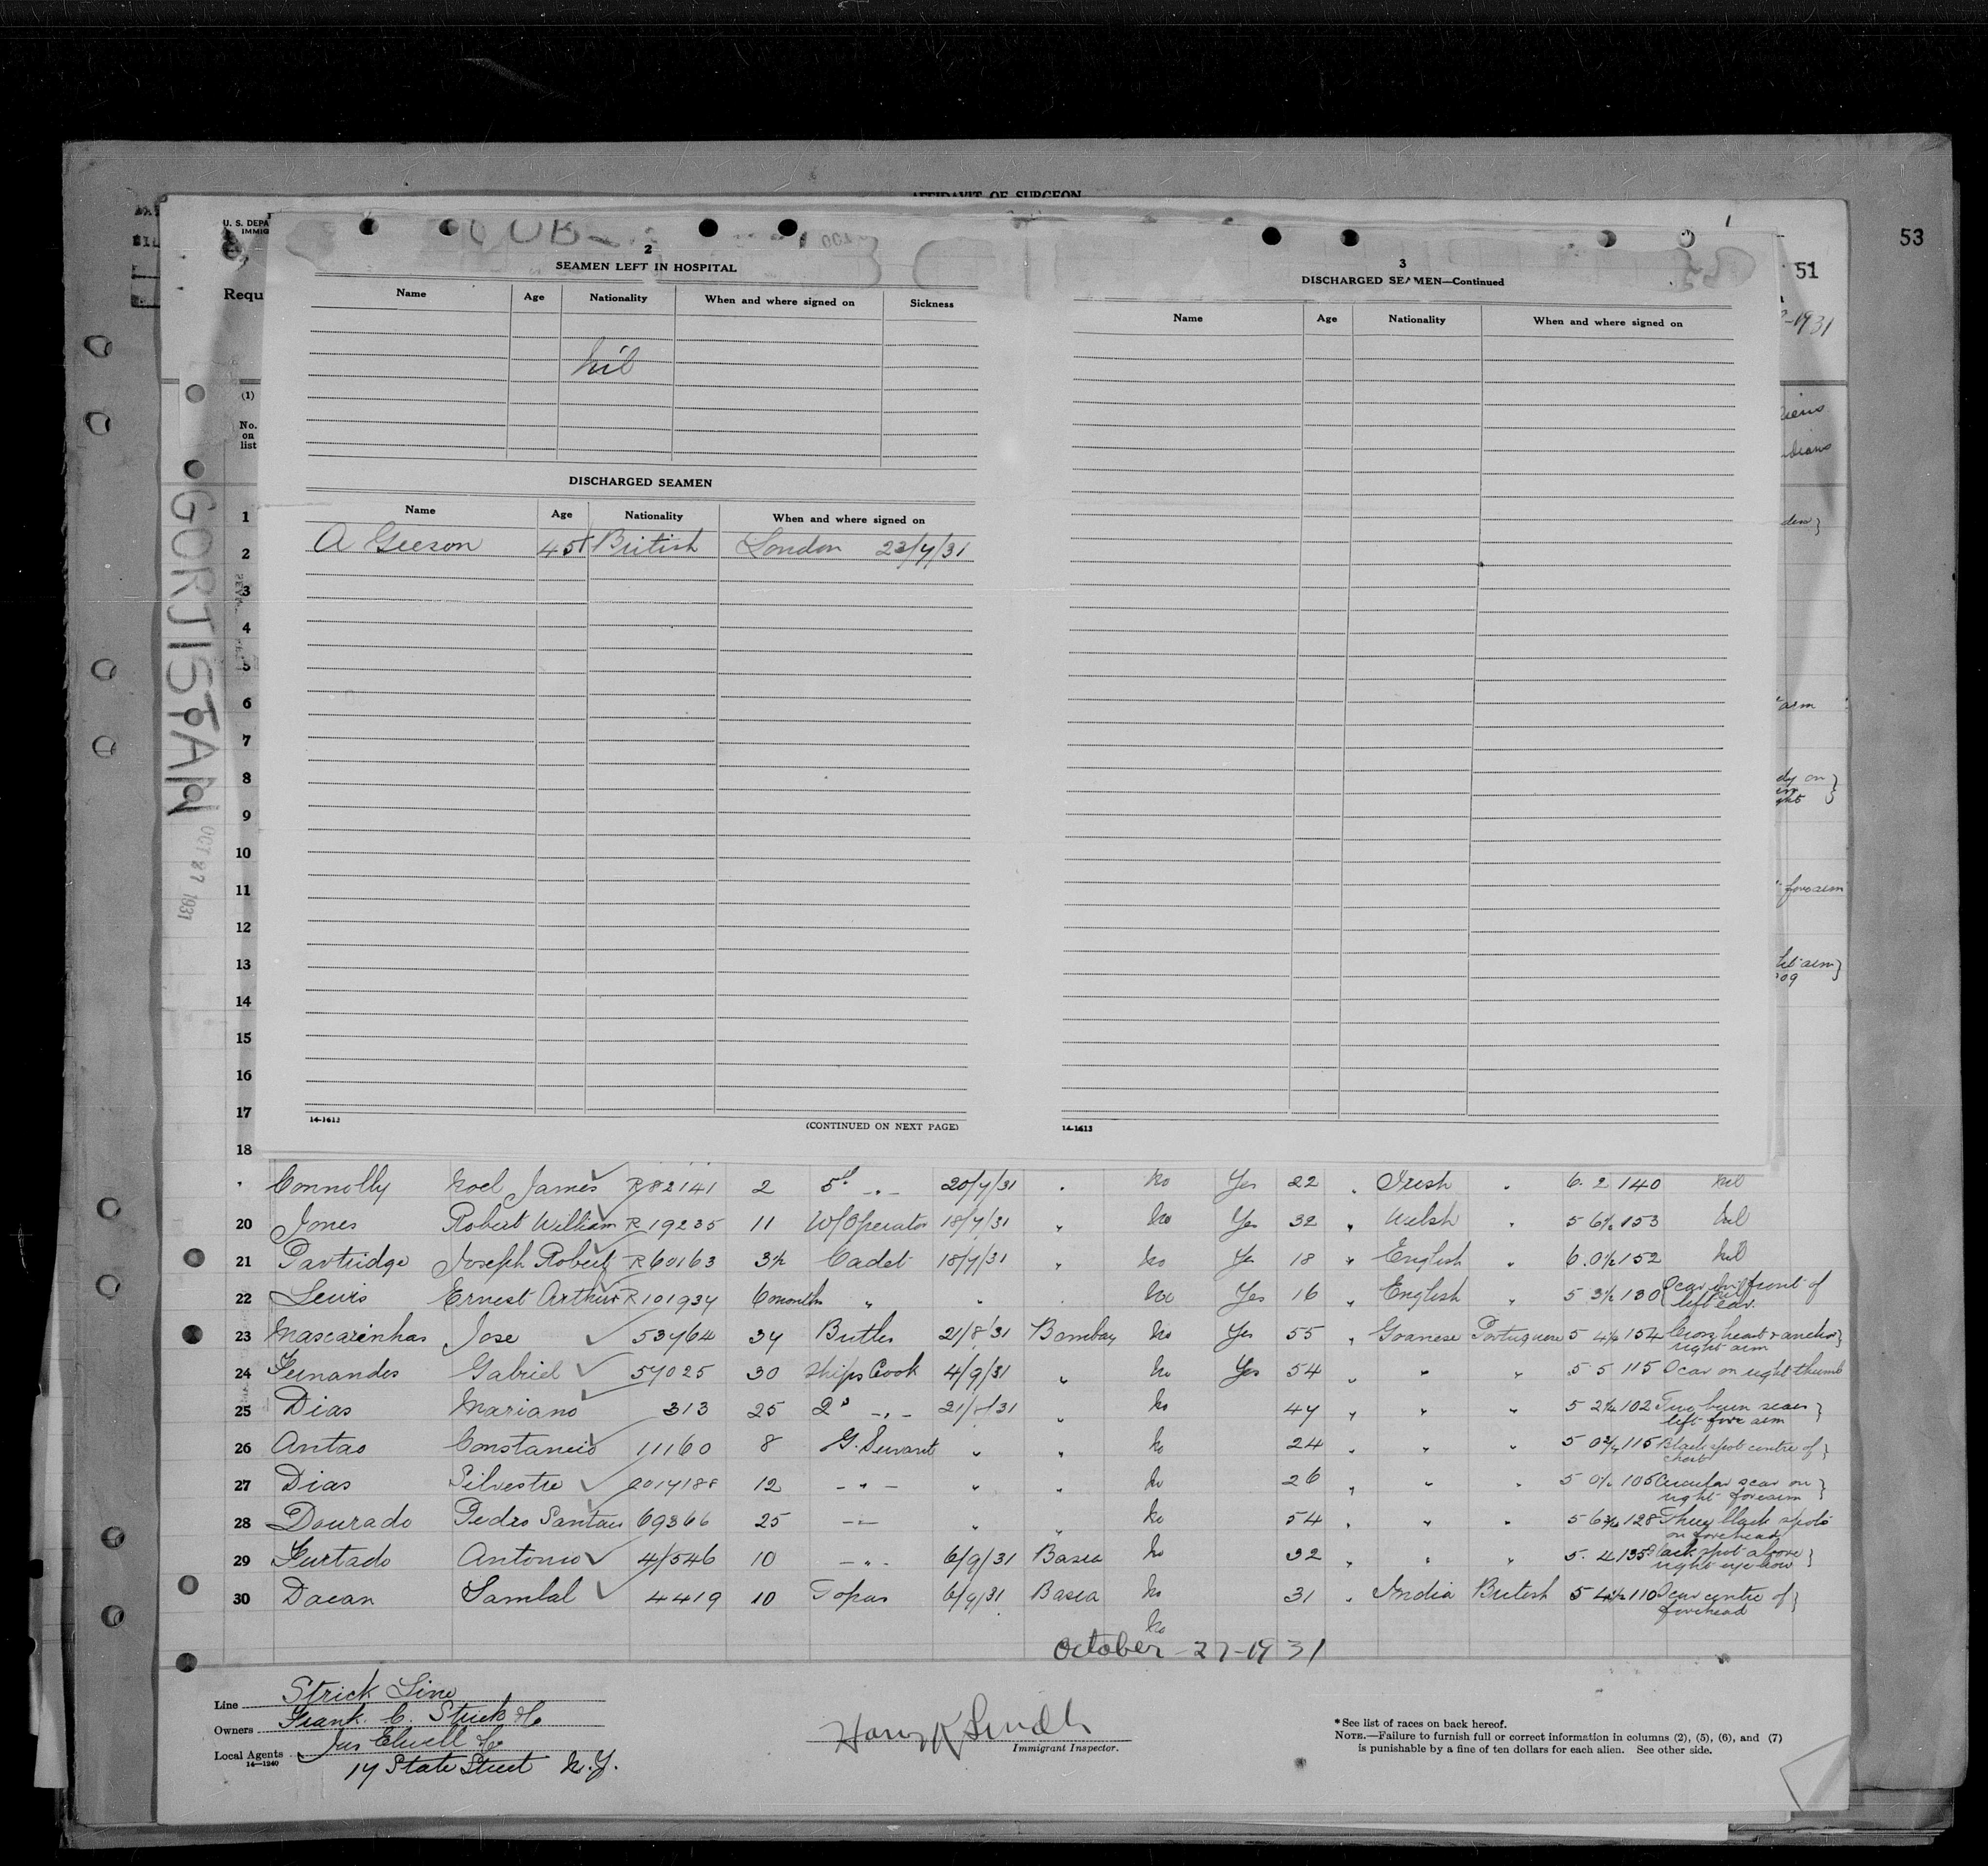 AFFIDAVIT OF SURGEON
53
U. S. DEPA
IMMIG
51
Requ
-1931
(1)
No.
on
list
GORJISTAN
OCT 27 1931
2
SEAMEN LEFT IN HOSPITAL
Name Age Nationality When and where signed on Sickness
Nil
DISCHARGED SEAMEN
Name Age Nationality When and where signed on
A Geeson 45 British London 23/7/31
14-1613
(CONTINUED ON NEXT PAGE)
3
DISCHARGED SEAMEN—Continued
Name Age Nationality When and where signed on
14-1613
arm
forearm
1
2
3
4
5
6
7
8
9
10
11
12
13
14
15
16
17
18
Connolly Noel James R82141 2 5th -"- 20/7/31 " No Yes 22 " Irish " 6. 2 140 Nil
20 Jones Robert William R 19235 11 W/Operator 18/7/31 " No Yes 32 " Welsh " 5 6½ 153 Nil
21 Partridge Joseph Robert R60163 3½ Cadet 18/7/31 " No Yes 18 " English " 6. 0½ 152 Nil
22 Lewis Ernest Arthur R101934 6 months " " No Yes 16 " English " 5 3½ 130 Scar front of
left ear.
23 Mascarinhas Jose 53764 34 Butler 21/8/31 Bombay No Yes 55 " Goanese Portuguese 5 4½ 154 Cross heart & anchor
right arm
24 Fernandes Gabriel 57025 30 Ships Cook 4/9/31 " No Yes 54 " " " 5 5 115 Scar on right thumb
25 Dias Mariano 313 25 2d -"- 21/8/31 " No 47 " " " 5 2¼ 102 Two burn scars
left fore arm
26 Antao Constancio 11160 8 G. Servant " " No 24 " " " 5 0¾ 115 Black spot centre of
chest
27 Dias Silvestre 12 -"- " " No 26 " " " 5 0½ 105 Circular scar on
right forearm
28 Dourado Pedro Santan 69366 25 -"- " " No 54 " " " 5 6¾ 128 Three black spots
on forehead
29 Furtado Antonio 41546 10 -"- 6/9/31 Basra No 32 " " " 5. 4 135 Black spot above
right eyebrow
30 Daean Samlal 4419 10 Topas 6/9/31 Basra No 31 " India British 5 4½ 110 Scar centre of
forehead
No
October-27-1931
Line Strick Line
Owners Frank. C. Strick & Co
Local Agents Jas Elwell & Co
14-1240
17 State Street N.Y.
Harry K Smith
Immigrant Inspector.
*See list of races on back hereof.
NOTE.—Failure to furnish full or correct information in columns (2), (5), (6), and (7)
is punishable by a fine of ten dollars for each alien. See other side.